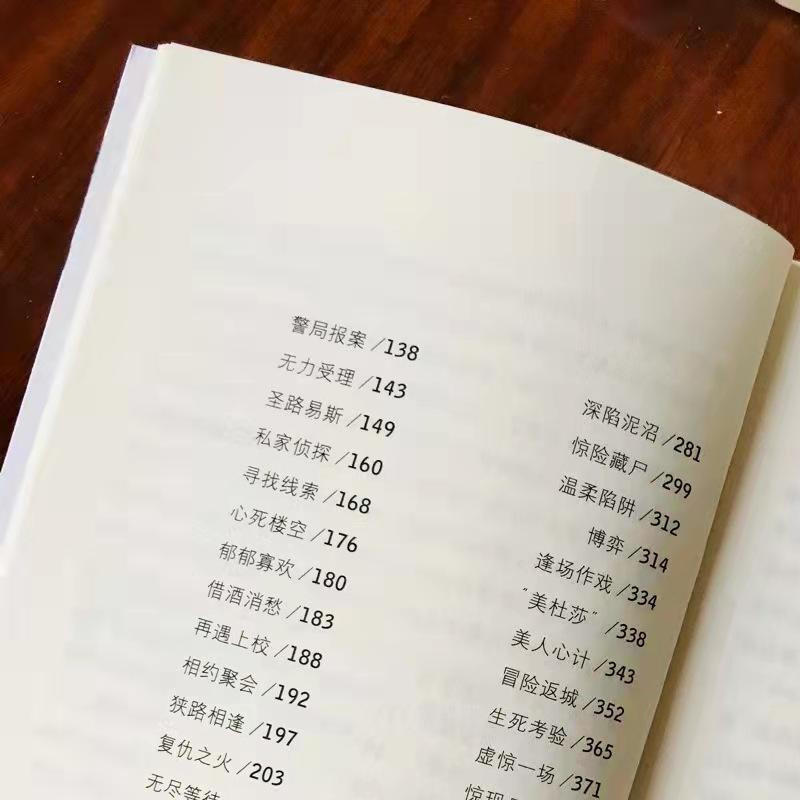 警局报案 /138
无力受理 /143
圣路易斯 /149
私家侦探 /160
寻找线索 /168
心死楼空 /176
郁郁寡欢 /180
借酒消愁 /183
再遇上校 /188
相约聚会 /192
狭路相逢 /197
复仇之火 /203
无尽等待
深陷泥沼 /281
惊险藏尸 /299
温柔陷阱 /312
博弈 /314
逢场作戏 /334
"美杜莎" /338
美人心计 /343
冒险返城 /352
生死考验 /365
虚惊一场 /371
惊现